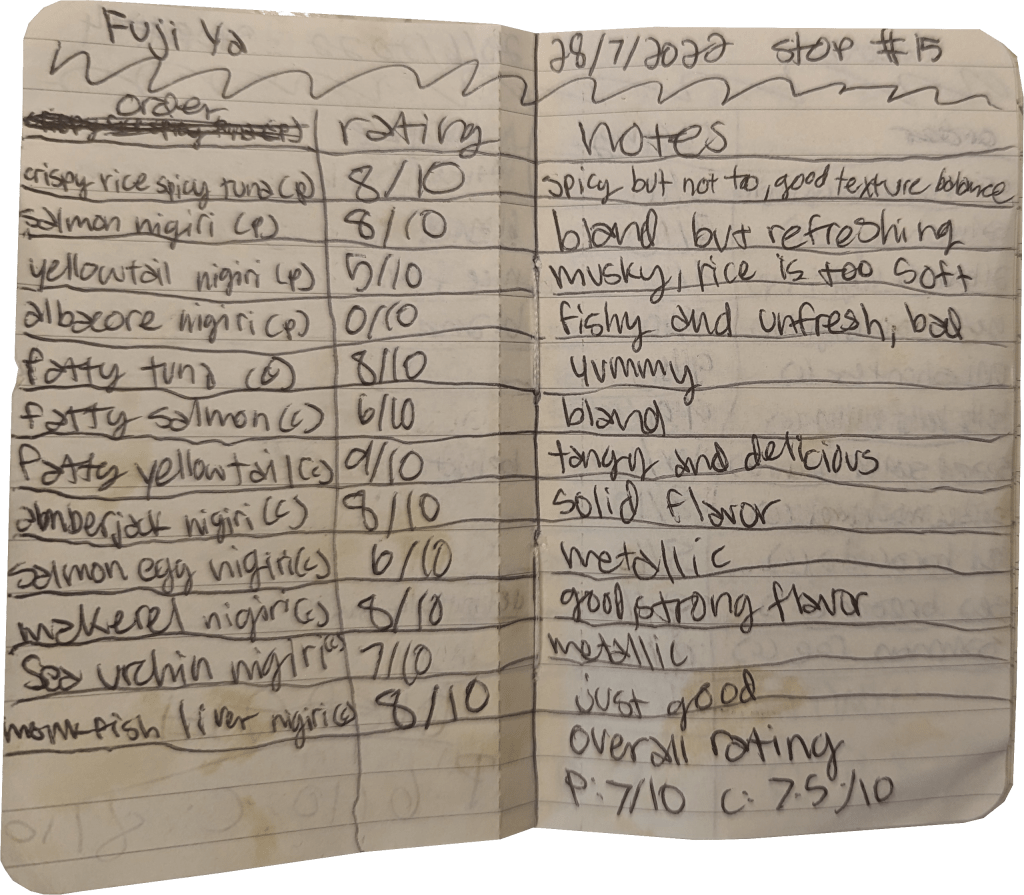 Fuji Ya
28/7/2022 stop #15
order rating notes
crispy rice spicy tuna (p) 8/10 spicy but not too, good texture balance
salmon nigiri (p) 8/10 bland but refreshing
yellowtail nigiri (p) 5/10 musky, rice is too soft
albacore nigiri (p) 0/10 fishy and unfresh, bad
fatty tuna (c) 8/10 yummy
fatty salmon (c) 6/10 bland
fatty yellowtail (c) 9/10 tangy and delicious
amberjack nigiri (c) 8/10 solid flavor
salmon egg nigiri (c) 6/10 metallic
makerel nigiri (c) 8/10 good strong flavor
sea urchin nigiri (c) 7/10 metallic
monkfish liver nigiri (c) 8/10 just good
overall rating
P: 7/10 C: 7.5/10